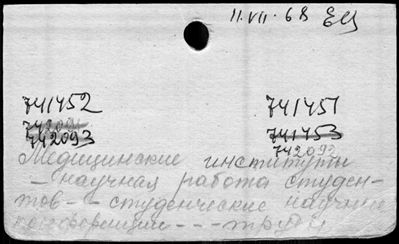 11.VII.68 ЕЦ
741452 741451
742091 741453
742093 742092
Медицинские институты
– научная работа студен-
тов – студенческие научные
конференции – – – труды